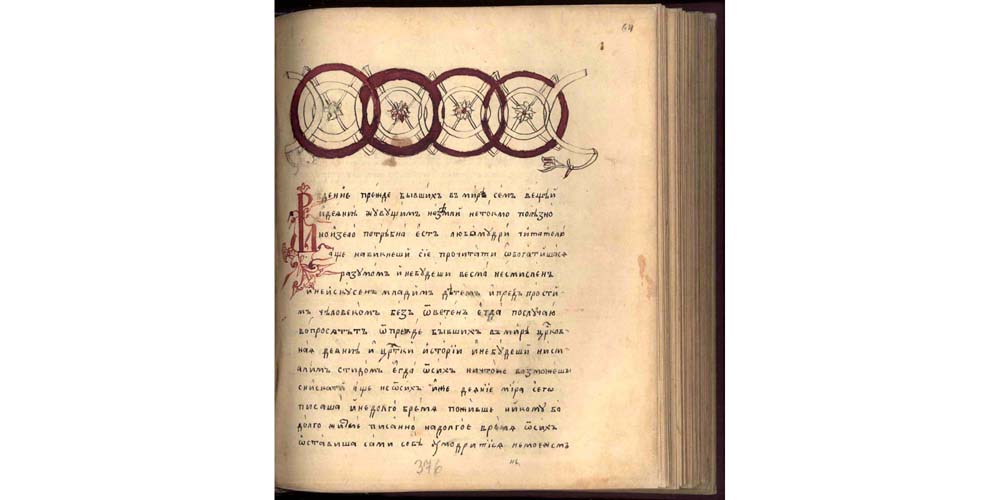 64
Видение прежде бывшихъ въ мирѣ семъ вещѣй
и деяниѣ живущимъ на земли нетокмо полѣзно
но и зело потрѣбна естъ любомудри читателю
аще навикнеши сіе прочитати ѡбогатишася
разумомъ и небудеши весма несмисленъ
и неискусенъ младимъ дѣтемъ и предъ прости
мъ человекомъ безъ ѿветенъ егда послучаю
вопросятъ ѿ прежде бывшихъ въ мирѣ црковъ
ная деяниѣ и црткіи исторіи и небудеши
алимъ стидомъ егда ѿ сихъ ничтоже возможеши
снискати аще не ѿ сихъ иже деяніе мира сего
писаша и недолго время поживше и никому бо
долго писанно на долгое время ѿ сихъ
ѡставиша сами собѣ умодритіся неможемъ
376